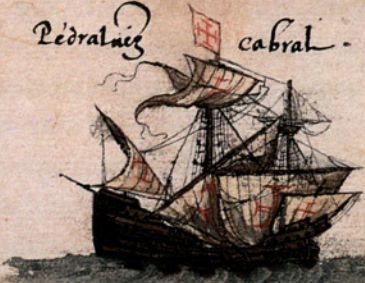 Pedraluez cabral ·